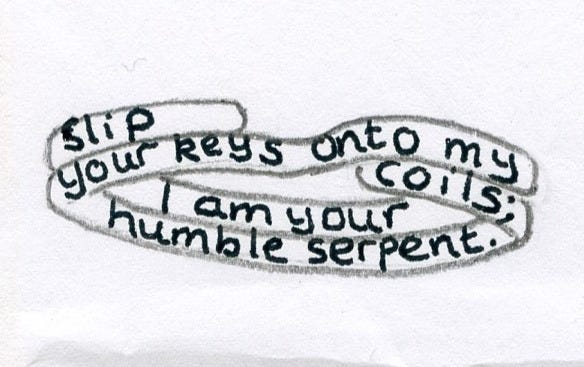 slip
your keys onto my
coils;
I am your
humble serpent.